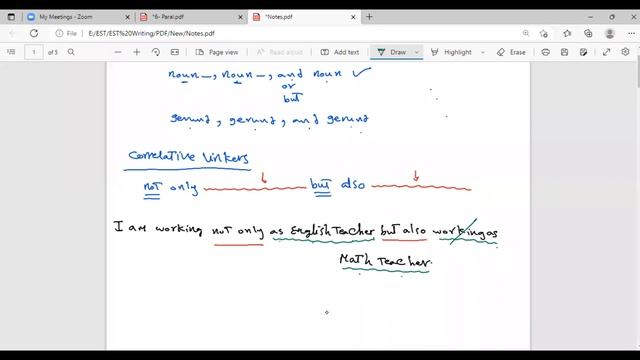 My Meetings - Zoom
*6- Paral.pdf
*Notes.pdf
E:/EST/EST%20Writing/PDF/New/Notes.pdf
1 of 5
Read aloud
Draw
Highlight
Erase
noun –, noun –, and noun ✓
or
but
gerund, gerund, and gerund
Correlative linkers
not only but also
I am working not only as English Teacher but also working as
Math Teacher.